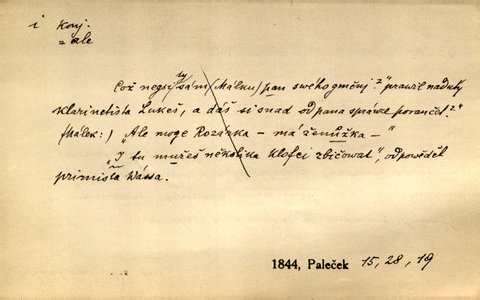 i Konj.
= ale
Což negsy ty sám (Málku) pan swého gměnj?" prawil nadutý
klarinetista Lukeš, a dáš si snad od pana spráwce poraučet?"
(Málek:) "Ale moge Rozárka – má ženuška –"
"I tu mužeš několika klofci zbičowat", odpowěděl
primista Wássa.
1844, Paleček 15, 28, 19